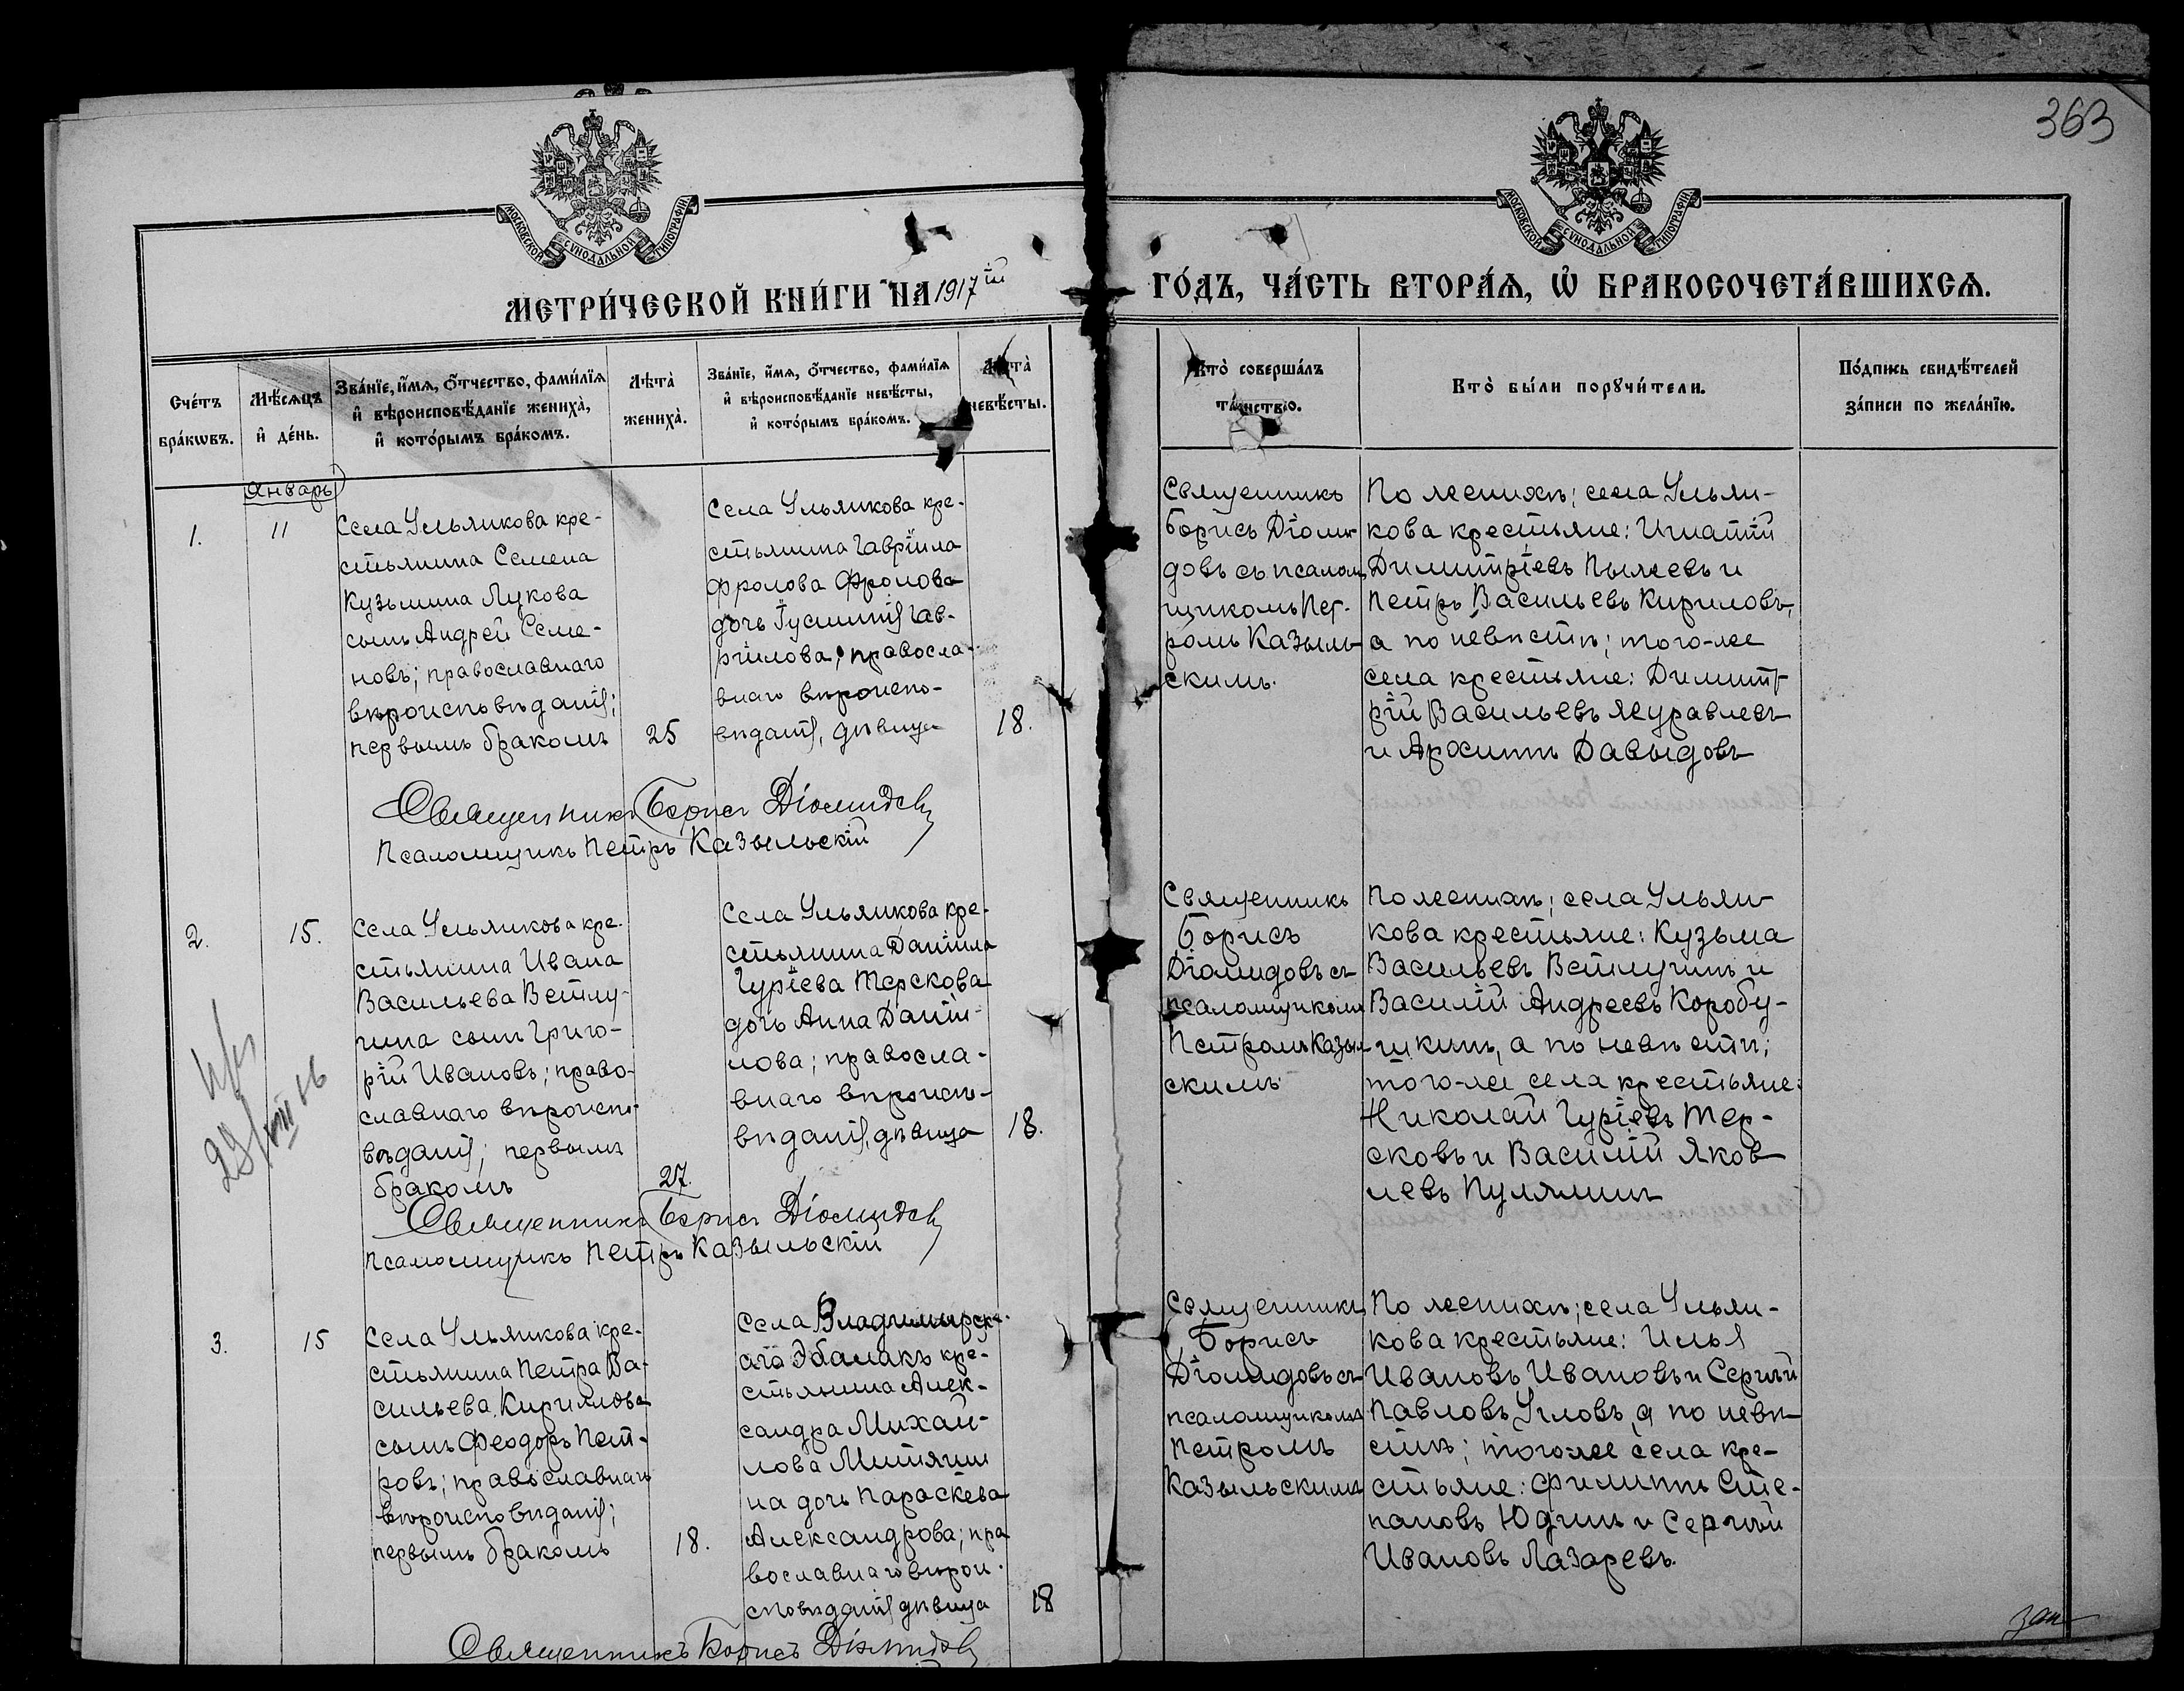 363
МОСКОВСКОЙ СѴНОДАЛЬНОЙ ТИПОГРАФІИ
МОСКОВСКОЙ СѴНОДАЛЬНОЙ ТИПОГРАФІИ
МЕТРИ́ЧЕСКОЙ КНИ́ГИ НА 1917ій ГО́ДЪ, ЧА́СТЬ ВТОРА́Ѧ, Ѡ҆ БРАКОСОЧЕТА́ВШИХСѦ.
Сче́тъ
бра́кѡвъ.
Мѣ́сѧцъ
и҆ де́нь.
Зва́нїе, и҆́мѧ, о҆́тчество, фами́лїѧ
и҆ вѣроисповѣ́данїе жениха̀,
и҆ кото́рымъ бра́комъ.
Лѣта̀
жениха̀.
Зва́нїе, и҆́мѧ, о҆́тчество, фами́лїѧ
и҆ вѣроисповѣ́данїе невѣ́сты,
и҆ кото́рымъ бра́комъ.
Лѣта̀
невѣ́сты.
Кто̀ соверша́лъ
та́инство.
Кто̀ бы́ли порꙋчи́тели.
По́дпись свидѣ́телей
за́писи по жела́нїю.
Январь
1.
11
Села Ульянкова кре-
стьянина Семена
Кузьмина Лукова
сынъ Андрей Семе-
новъ; православнаго
вѣроисповѣданія;
первымъ бракомъ
25
Села Ульянкова кре-
стьянина Гавріила
Фролова Фролова
дочь Іустинія Гав-
ріилова, правосла-
внаго вѣроиспо-
вѣданія, дѣвица
18.
Священникъ
Борисъ Діоми-
довъ съ псалом-
щикомъ Пет-
ромъ Казыль-
скимъ.
По женихѣ; села Ульян-
кова крестьяне: Игнатій
Димитріевъ Пыжевъ и
Петръ Васильевъ Кириловъ,
а по невѣстѣ; того-же
села крестьяне: Димит-
рій Васильевъ Журавлевъ
и Архиппъ Давыдовъ
Священникъ Борисъ Діомидовъ
Псаломщикъ Петръ Казыльскій
2.
15.
Села Ульянкова кре-
стьянина Ивана
Васильева Ветлу-
гина сынъ Григо-
рій Ивановъ; право-
славнаго вѣроиспо-
вѣданія; первымъ
бракомъ
27.
Села Ульянкова кре-
стьянина Даніила
Гуріева Терскова
дочь Анна Даніи-
лова; правосла-
внаго вѣроиспо-
вѣданія, дѣвица
18.
Священникъ
Борисъ
Діомидовъ съ
псаломщикомъ
Петромъ Казыль-
скимъ
По женихѣ; села Ульян-
кова крестьяне: Кузьма
Васильевъ Ветлугинъ и
Василій Андреевъ Коробу-
шкинъ, а по невѣстѣ;
того-же села крестьяне:
Николай Гуріевъ Тер-
сковъ и Василій Яков-
левъ Пулялинъ
Священникъ Борисъ Діомидовъ
Псаломщикъ Петръ Казыльскій
3.
15
Села Ульянкова кре-
стьянина Петра Ва-
сильева Кириллова
сынъ Феодоръ Пет-
ровъ; православнаго
вѣроисповѣданія;
первымъ бракомъ
18.
Села Владимирска-
аго Эбалакъ кре-
стьянина Алек-
сандра Михай-
лова Митягин
на дочь Параскева
Александрова; пра
вославнаго вѣрои-
сповѣданія дѣвица
18
Священникъ
Борисъ
Діомидовъ съ
псаломщикомъ
Петромъ
Казыльскимъ
По женихѣ; села Ульян-
кова крестьяне: Илья
Ивановъ Ивановъ и Сергѣй
Павловъ Угловъ, а по невѣ-
стѣ; того-же села кре-
стьяне: Филиппъ Сте-
пановъ Юдинъ и Сергѣй
Ивановъ Лазаревъ.
Священникъ Борисъ Діомидовъ